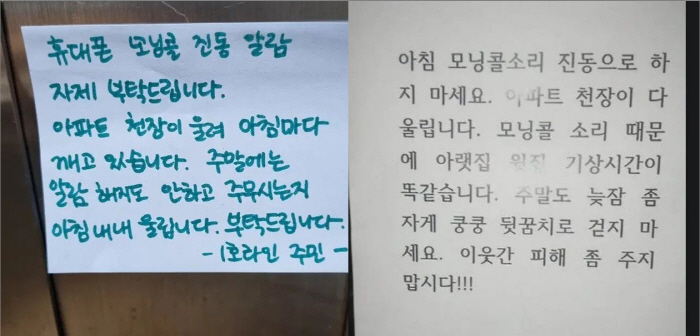 휴대폰 모닝콜 진동 알람
자제 부탁드립니다.
아파트 천장이 울려 아침마다
깨고 있습니다. 주말에는
알람 해지도 안하고 주무시는지
아침내내 울립니다. 부탁드립니다.
- 1호라인 주민 -
아침 모닝콜소리 진동으로 하
지 마세요. 아파트 천장이 다
울립니다. 모닝콜 소리 때문
에 아랫집 윗집 기상시간이
똑같습니다. 주말도 늦잠 좀
자게 쿵쿵 뒷꿈치로 걷지 마
세요. 이웃간 피해 좀 주지
맙시다!!!